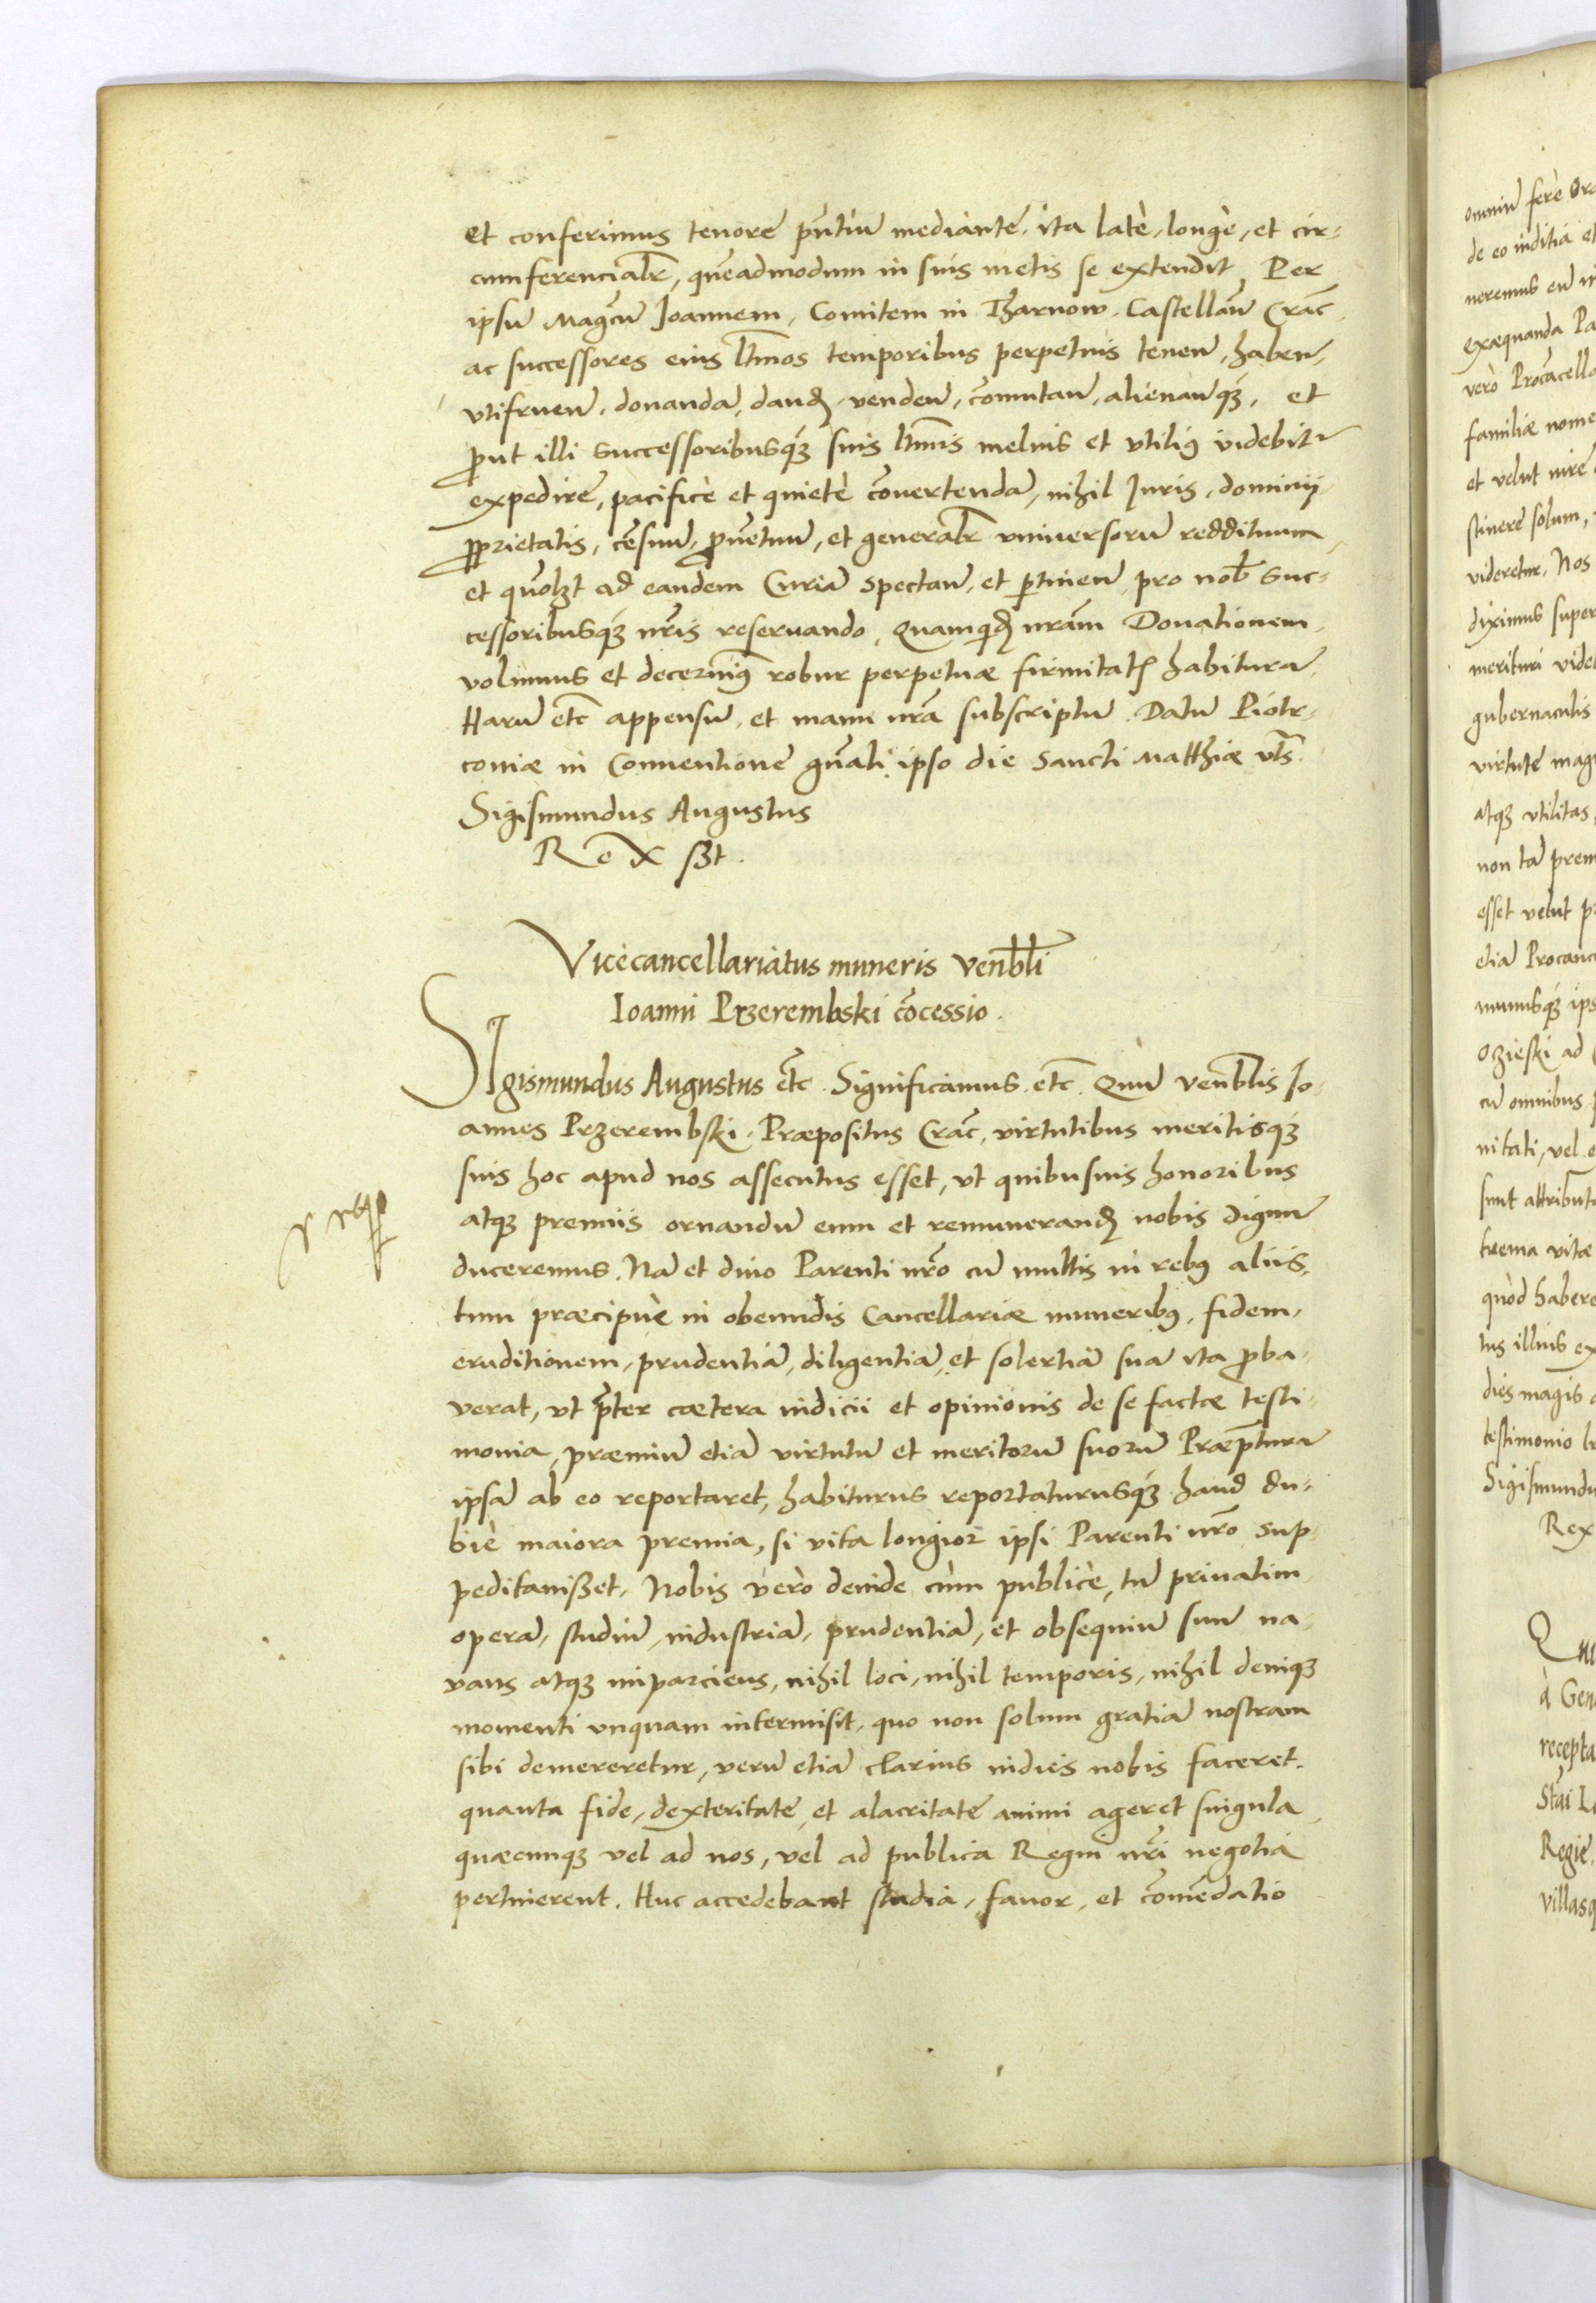 et conferimus tenore pñtiũ mediante, ita latè, longè, et cir-
cumferencialr̃, quẽadmodum in suis metis se extendit Per
ipsũ Magcũ Joannem, Comitem in Tharnow, Castellanũ Crac̃
ac successores eius ltĩmos temporibus perpetuis tenen̄, haben̄,
vtifruen̄, donanda, dand, venden̄, cõmutan̄, alienan̄q3, et
ꝓut illi successoribusq3 suis ltĩmis melius et vtiliꝰ videbitʳ
expedire, pacificè et quietè cõuertenda, nihil Juris, dominij
ꝓprietatis, cẽsuũ, ꝓuẽtuũ, et generalr̃ vniuersorũ reddituum
et quõlꝫt ad eandem Curiã spectan̄, et ꝑtinen̄ pro nob̃ suc-
cessoribusq3 nr̃is reseruando, Quamquid nrãm Donationem
volumus et decernimꝰ robur perpetuæ firmitatis habiturã,
Harũ etc̃ appensũ, et manu nrã subscriptũ. Datũ Piotr-
couiæ in Conuentione gñali ipso die Sancti Matthiæ vts̃.
Sigismundus Augustus
Rex sst.
Vicecancellariatus muneris venbĩli
Ioanni Przerembski cõcessio.
SIgismundus Augustus etc̃. Significamus etc̃. Quũ venblĩs Jo-
annes Przerembski, Præpositus Crac̃, virtutibus meritisq3
suis hoc apud nos assecutus esset, vt quibusuis honoribus
atq3 premiis ornandũ eum et remunerand nobis dignũ
duceremus. Nã et diuo Parenti nrõ cũ multis in rebꝰ aliis,
tum præcipuè in obeundis Cancellariæ muneribꝰ, fidem,
eruditionem, prudentiã, diligentiã, et solertiã suã ita ꝓba-
verat, vt ꝓter cætera iudicii et opinionis de se factæ testi-
monia, præmiũ etiã virtutũ et meritorũ suorũ Præp̃turã
ipsã ab eo reportaret, habiturus reportaturusq3 haud du-
biè maiora premia, si vita longior ipsi Parenti nrõ sup-
peditauißet, Nobis verò deinde cùm publicè, tũ priuatim
operã, studiũ, industriã, prudentiã, et obsequiũ suũ na-
vans atq3 imparciens, nihil loci, nihil temporis, nihil deniq3
momenti vnquam intermisit, quo non solum gratiã nostram
sibi demereretur, verũ etiã clarius indies nobis faceret.
quanta fide, dexteritate, et alacritate animi ageret singula
quæcunq3 vel ad nos, vel ad publica Regni nrĩ negotia
pertinerent. Huc accedebant studia, fauor, et cõmẽdatio
omniũ ferè
de eo inditia et
neremus eũ
exæquanda
verò
familiæ
et velut
stinere solum,
videretur. Nos
diximus super
merituri
gubernaculis
virtute
atq3 vtilitas
non tã
esset velut
etiã
munusq3
Ozieski ad
cũ omnibus
nitati, vel
sunt
trema vitæ
quòd
tus illius
dies magis
testimonio
Rex
à
Regiè